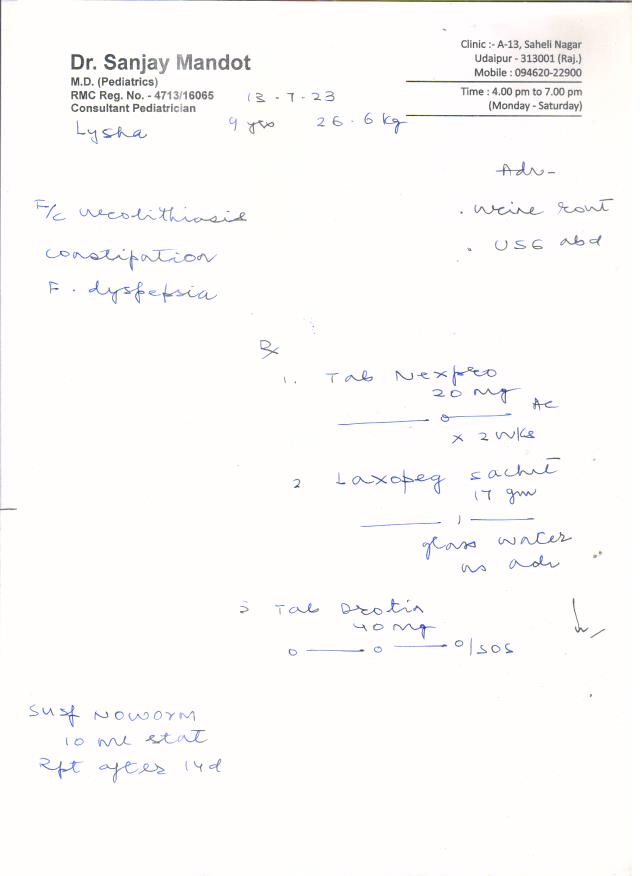 Dr. Sanjay Mandot
M.D. (Pediatrics)
RMC Reg. No. - 4713/16065
Consultant Pediatrician
Clinic :- A-13, Saheli Nagar
Udaipur - 313001 (Raj.)
Mobile : 094620-22900
Time : 4.00 pm to 7.00 pm
(Monday - Saturday)
13 - 7 - 23
Lysha 9 yrs 26.6 kg
Adv-
F/c urolithiasis
. urine rout
constipation
. USG abd
F. dyspepsia
Rx
1. Tab Nexpro
20 mg
o AC
x 2 wks
2 Laxopeg sachet
17 gm
1
glass water
as adv
3 Tab Drotin
40 mg
o — o — o/sos
Susp NOWORM
10 ml stat
Rpt after 14d